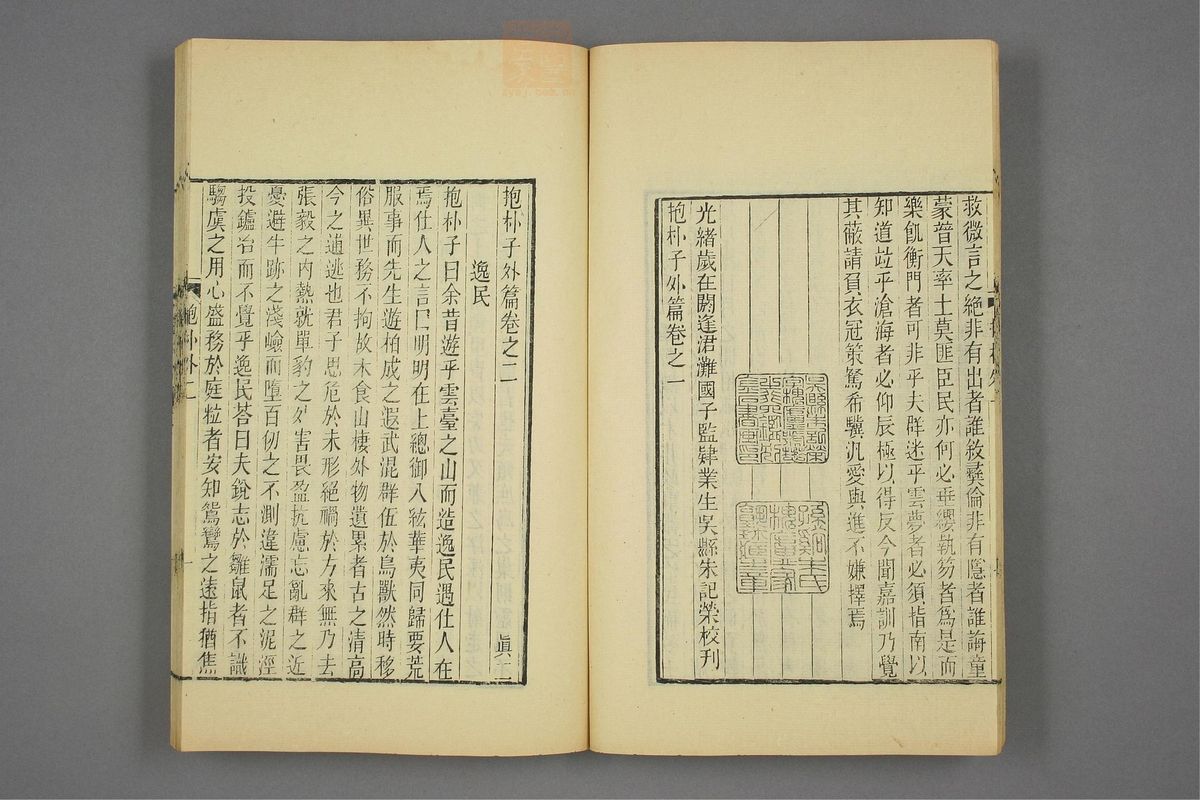 救微言之絶非有出者誰敘彞倫非有隱者誰誨童
蒙普天率土莫匪臣民亦何必垂纓執笏者爲是而
樂飢衡門者可非乎夫群迷乎雲夢者必須指南以
知道竝乎滄海者必仰辰極以得反今聞嘉訓乃覺
其蔽請負衣冠策駑希驥汎愛與進不嫌擇焉
光緒歲在閼逢涒灘國子監肄業生吳縣朱記榮校刊
抱朴子外篇卷之一
抱朴子外篇卷之二 眞二
逸民
抱朴子曰余昔遊乎雲臺之山而造逸民遇仕人在
焉仕人之言曰明明在上總御八紘華夷同歸要荒
服事而先生遊柏成之遐武混群伍於鳥獸然時移
俗異世務不拘故木食山棲外物遺累者古之清高
今之逋逃也君子思危於未形絕禍於方來無乃去
張毅之内熱就單豹之外害畏盈抗慮忘亂群之近
憂避牛跡之淺嶮而墮百仞之不測違濡足之泥涇
投鑪冶而不覺乎逸民荅曰夫銳志於雛鼠者不識
騶虞之用心盛務於庭粒者安知鴛鸞之遠指猶焦
抱朴外二